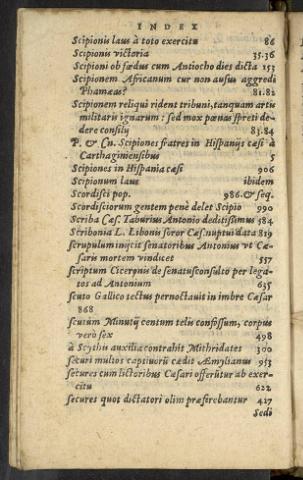 INDEX
Scipionis laus à toto exercitu 86
Scipionis victoria 35.36
Scipioni ob fœdus cum Antiocho dies dicta 153
Scipionem Africanum cur non ausus aggredi
Phamæas? 81.82
Scipionem reliqui rident tribuni, tanquam artis
militaris ignarum: sed mox pœnas spreti de-
dere consilij 83.84
P. & Cn. Scipiones fratres in Hispanijs cæsi à
Carthaginensibus 5
Scipiones in Hispania cæsi 906
Scipionum laus ibidem
Scordisci pop. 986. & seq.
Scordiscorum gentem penè delet Scipio 990
Scriba Cæs. Taburius Antonio deditissimus 584
Scribonia L. Libonis soror Cæs. nuptui data 819
scrupulum inijcit senatoribus Antonius vt Cæ-
saris mortem vindicet 557
scriptum Ciceronis de senatusconsulto per lega-
tos ad Antonium 635
scuto Gallico tectus pernoctauit in imbre Cæsar
868
scutum Minutij centum telis confossum, corpus
verò sex 498
à Scythis auxilia contrahit Mithridates 300
securi multos captiuorũ cædit Æmylianus 953
secures cum lictoribus Cæsari offerũtur ab exer-
citu 622
secures quot dictatori olim præferebantur 427
Sedi